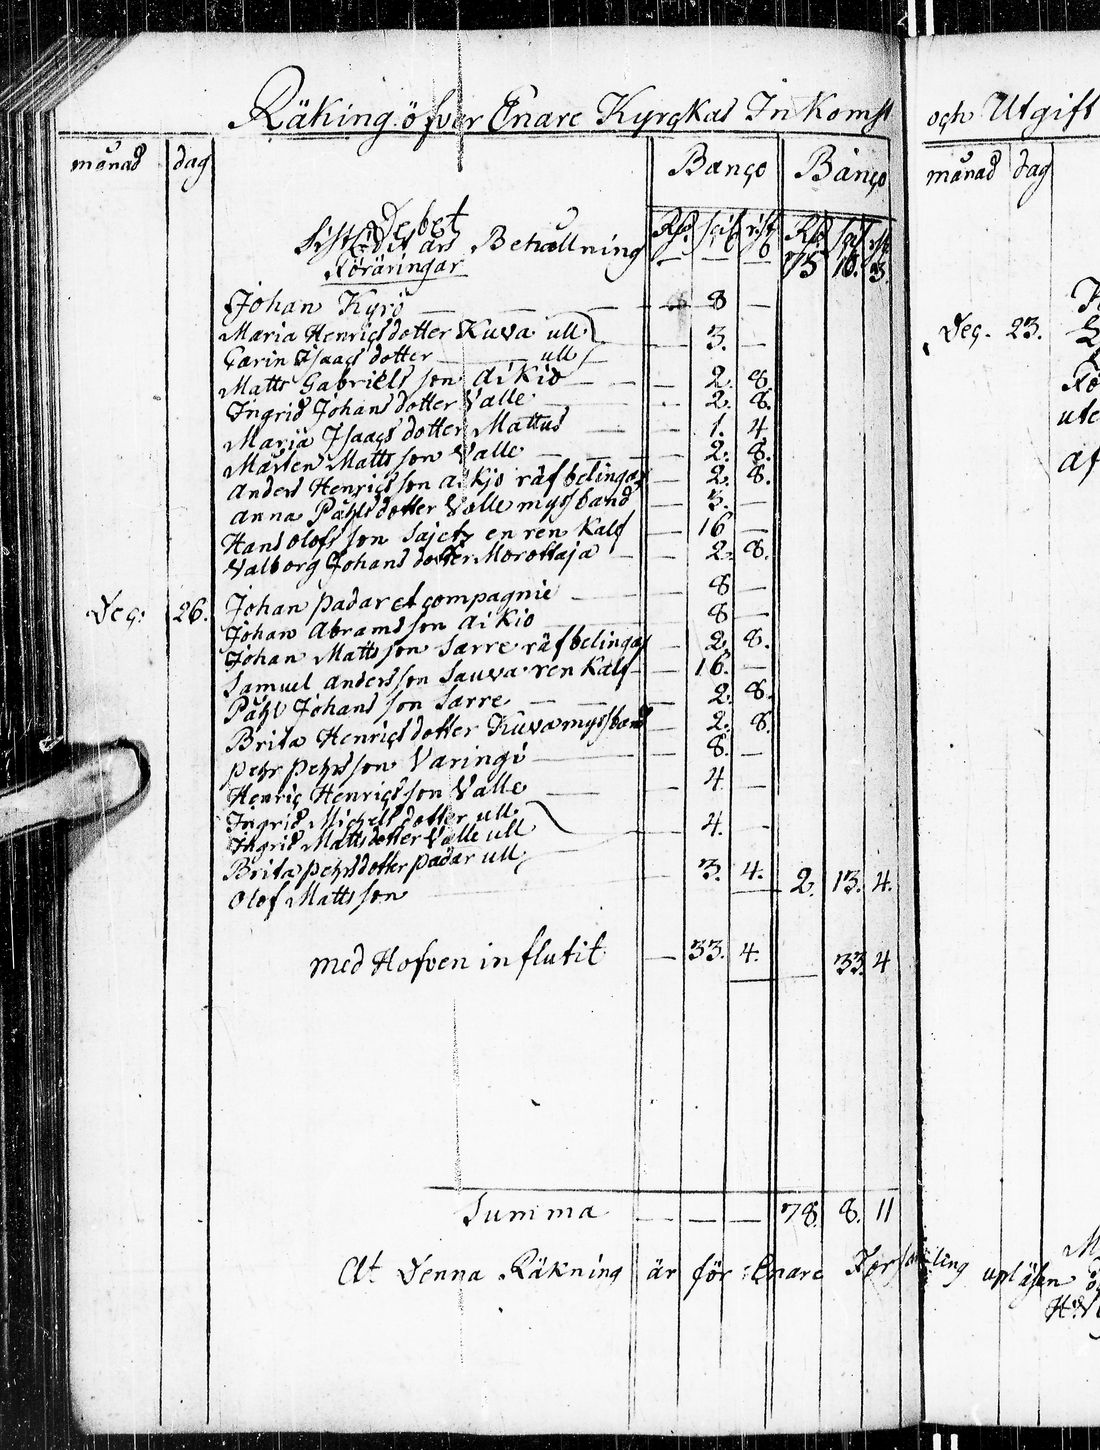 Räkning öfver Enare Kyrckas Inkomst
månad dag Banco Banco
Debet
Sistledit års Behållning Rdr sch rst Rdr sch rst
— — — 75 10. 3.
Föräringar
Johan Kyrö — 8 —
Maria Henricsdotter Kuva ull
Carin Isaacsdotter ull — 3. —
Matts Gabrielsson Aikio — 2. 8.
Ingrid Johansdotter Valle 2. 8.
Maria Isaacsdotter Mattus — 1. 4
Mårten Mattsson Valle — 2. 8.
Anders Henricsson Aikio räfbelingar — 2. 8.
Anna Påhlsdotter Valle myssband — 3. —
Hans Olofsson Sajetz en ren Kalf — 16 —
Valborg Johansdotter Morottaja — 2. 8.
Dec: 26. Johan Padar et compagnie — 8 —
Johan Abramsson Aikio 8 —
Johan Mattsson Sarre räfbelingar — 2. 8.
Samuel Andersson Sauva ren Kalf — 16. —
Påhl Johansson Sarre — 2. 8.
Brita Henricsdotter Kuva myssband 2. 8.
Pehr Pehrsson Varingi — 8. —
Henric Henricsson Valle — 4 —
Ingrid Michelsdotter ull
Ingrid Mattsdotter Valle ull — 4. —
Brita Pehrsdotter Padar ull
Olof Mattsson — 3. 4. 2. 13. 4.
med Hofven influtit — 33. 4. — 33 4
Summa — — — 78. 8. 11
At Denna Räkning är för Enare Församling upläsen
och Utgift
månad dag
Dec. 23.
ute
af